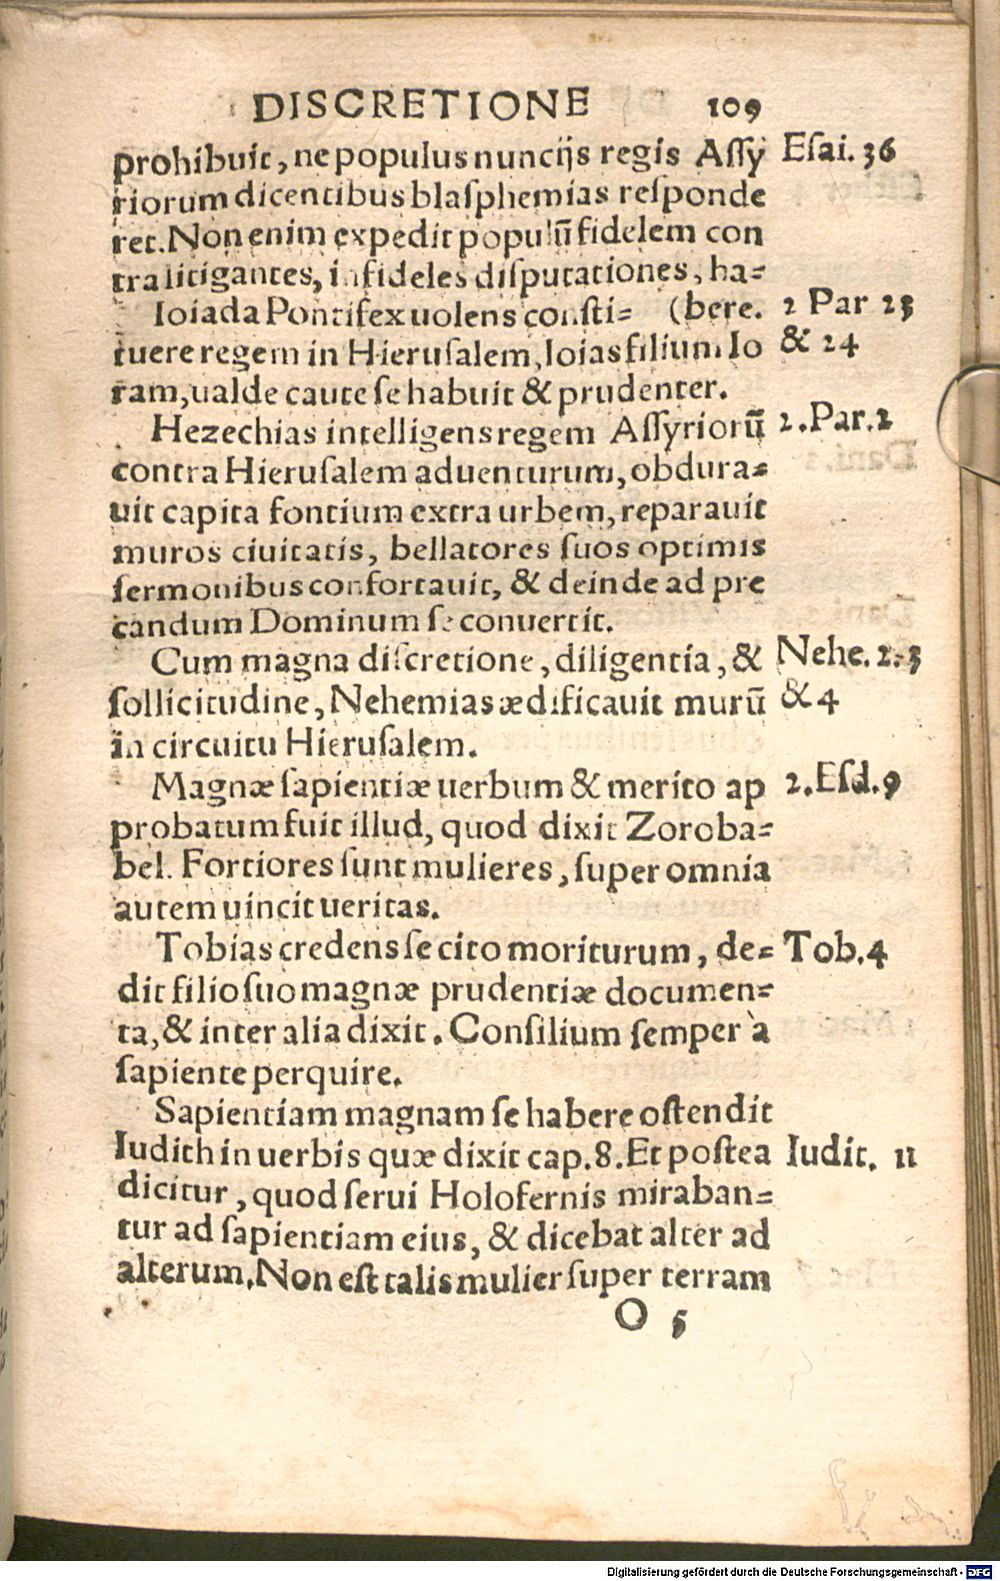 DISCRETIONE 109
prohibuit, ne populus nuncijs regis Assy Esai. 36
riorum dicentibus blasphemias responde
ret. Non enim expedit populū fidelem con
tra litigantes, infideles disputationes, ha-
Ioiada Pontifex uolens consti- (bere. 2 Par 23
tuere regem in Hierusalem, Ioias filium Io & 24
ram, ualde caute se habuit & prudenter.
Hezechias intelligens regem Assyriorū 2. Par. 2
contra Hierusalem aduenturum, obdura-
uit capita fontium extra urbem, reparauit
muros ciuitatis, bellatores suos optimis
sermonibus confortauit, & deinde ad pre
candum Dominum se conuertit.
Cum magna discretione, diligentia, & Nehe. 2. 3
sollicitudine, Nehemias ædificauit murū & 4
in circuitu Hierusalem.
Magnæ sapientiæ uerbum & merito ap 2. Esd. 9
probatum fuit illud, quod dixit Zoroba-
bel. Fortiores sunt mulieres, super omnia
autem uincit ueritas.
Tobias credens se cito moriturum, de- Tob. 4
dit filio suo magnæ prudentiæ documen-
ta, & inter alia dixit. Consilium semper à
sapiente perquire.
Sapientiam magnam se habere ostendit
Iudith in uerbis quæ dixit cap. 8. Et postea Iudit. 11
dicitur, quod serui Holofernis miraban-
tur ad sapientiam eius, & dicebat alter ad
alterum. Non est talis mulier super terram
O 5
Digitalisierung gefördert durch die Deutsche Forschungsgemeinschaft - DFG